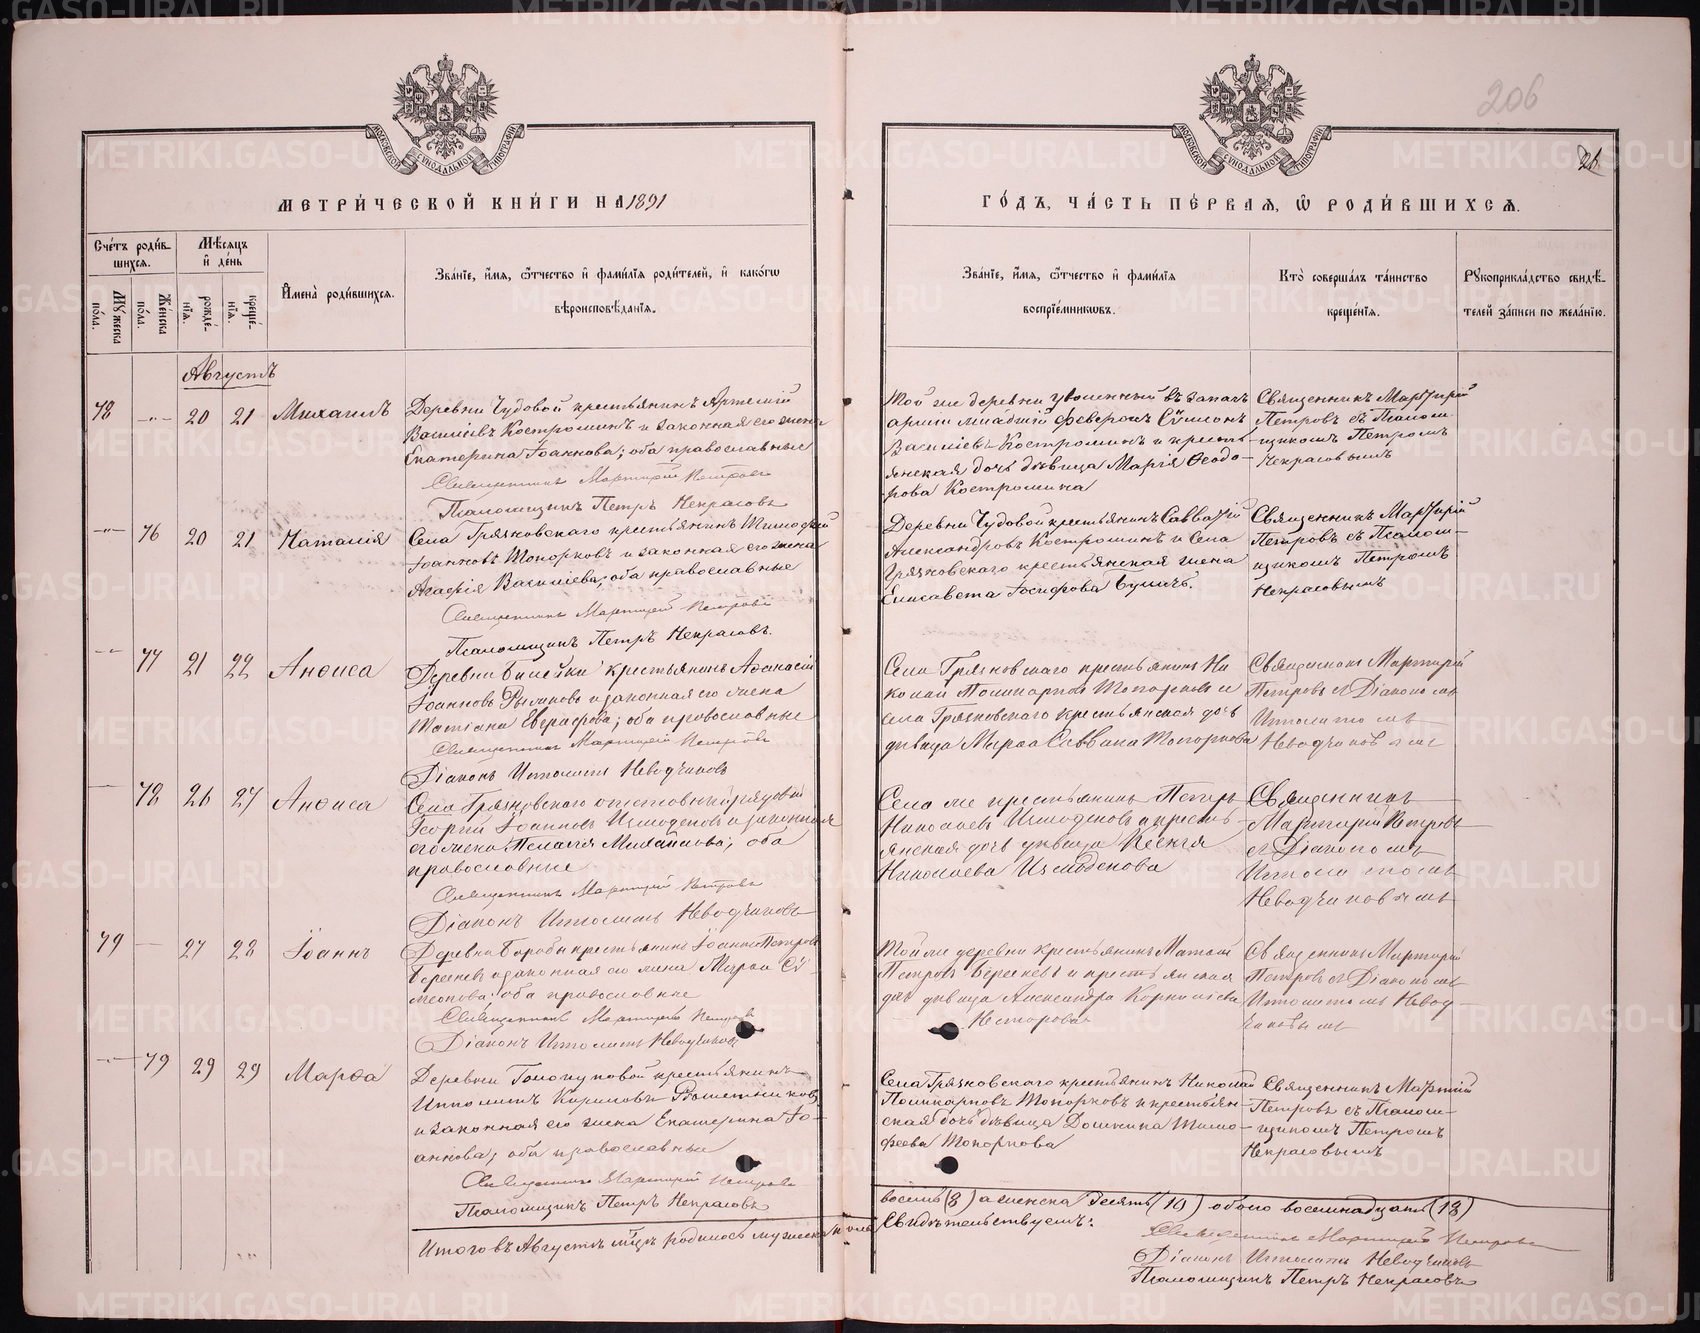 206
26
МЕТРИ́ЧЕСКОЙ КНИ́ГИ НА 1891
ГО́ДЪ, ЧА́СТЬ ПЕ́РВАЯ, Ѡ РОДИ́ВШИХСЯ.
Сче́тъ роди́в-
шихся.
Мѣ́сяцъ
и҆ де́нь
Му́жеска
по́ла.
Же́нска
по́ла.
рожде́-
нїя.
креще́-
нїя.
И҆мена̀ роди́вшихся.
Зва́нїе, и҆́мя, ѻ҆́тчество и҆ фами́лїя роди́телей, и҆ како́гѡ
вѣроисповѣ́данїя.
Зва́нїе, и҆́мя, ѻ҆́тчество и҆ фами́лїя
воспрїе́мниковъ.
Кто̀ соверша́лъ та́инство
креще́нїя.
Рꙋкоприкла́дство свидѣ́-
телей за́писи по жела́нїю.
Августъ
78 -"- 20 21 Михаилъ
Деревни Чудовой крестьянинъ Артемій
Василіевъ Костроминъ и законная его жена
Екатерина Іоаннова; оба православные
Священникъ Мартирій Петровъ
Псаломщикъ Петръ Некрасовъ
Той же деревни уволенный въ запасъ
арміи младшій феверокъ Сѵмеонъ
Василіевъ Костроминъ и кресть-
янская дочь дѣвица Марія Ѳеодо-
рова Костромина
Священникъ Мартирій
Петровъ съ Псалом-
щикомъ Петромъ
Некрасовымъ
-"- 76 20 21 Наталія
Села Грязновскаго крестьянинъ Тимоѳей
Іоанновъ Топорковъ и законная его жена
Агафія Василіева; оба православные
Священникъ Мартирій Петровъ
Псаломщикъ Петръ Некрасовъ.
Деревни Чудовой крестьянинъ Савватій
Александровъ Костроминъ и Села
Грязновскаго крестьянская жена
Елисавета Іосифова
Священникъ Мартирій
Петровъ съ Псалом-
щикомъ Петромъ
Некрасовымъ
-"- 77 21 22 Анѳиса
Деревни Билейки крестьянинъ Аѳанасій
Іоанновъ и законная его жена
Татіана Евграфова; оба православные
Священникъ Мартирій Петровъ
Діаконъ Ипполитъ Неводчиковъ
Села Грязновскаго крестьянинъ Ни-
колай Поликарповъ Топорковъ и
села Грязновскаго крестьянская дочь
дѣвица Марѳа Саввина Топоркова
Священникъ Мартирій
Петровъ съ Діакономъ
Ипполитомъ
Неводчиковымъ
— 78 26 27 Анѳиса
Села Грязновскаго отставный рядовой
Георгій Іоанновъ Измоденовъ и законная
его жена Пелагія Михайлова; оба
православные
Священникъ Мартирій Петровъ
Діаконъ Ипполитъ Неводчиковъ
Села же крестьянинъ Петръ
Николаевъ Измоденовъ и кресть-
янская дочь дѣвица Ксенія
Николаева Измоденова
Священникъ
Мартирій Петровъ
съ Діакономъ
Ипполитомъ
Неводчиковымъ
79 — 27 28 Іоаннъ
Деревни Боровы крестьянинъ Іоаннъ Петровъ
Береневъ и законная его жена Марѳа Сѵ-
меонова; оба православные
Священникъ Мартирій Петровъ
Діаконъ Ипполитъ Неводчиковъ
Той же деревни крестьянинъ Матѳей
Петровъ Береневъ и крестьянская
дочь дѣвица Александра Корниліева
Несторова
Священникъ Мартирій
Петровъ съ Діакономъ
ИпполитомъНевод-
чиковымъ
-"- 79 29 29 Марѳа
Деревни Голопуповой крестьянинъ
Ипполитъ Кориловъ Рѣшетниковъ
и законная его жена Екатерина Іо-
аннова; оба православные
Священникъ Мартирій Петровъ
Псаломщикъ Петръ Некрасовъ
Села Грязновскаго крестьянинъ Николай
Поликарповъ Топорковъ и крестьян-
ская дочь дѣвица Домника Тимо-
феева Топоркова
Священникъ Мартирій
Петровъ съ Псалом-
щикомъ Петромъ
Некрасовымъ
Итого въ Августѣ мѣсяцѣ родилось мужеска пола
восемь (8) а женска десять (10) обоего восемнадцать (18)
Свидѣтельствуемъ:
Священникъ Мартирій Петровъ
Діаконъ Ипполитъ Неводчиковъ
Псаломщикъ Петръ Некрасовъ
METRIKI.GASO-URAL.RU